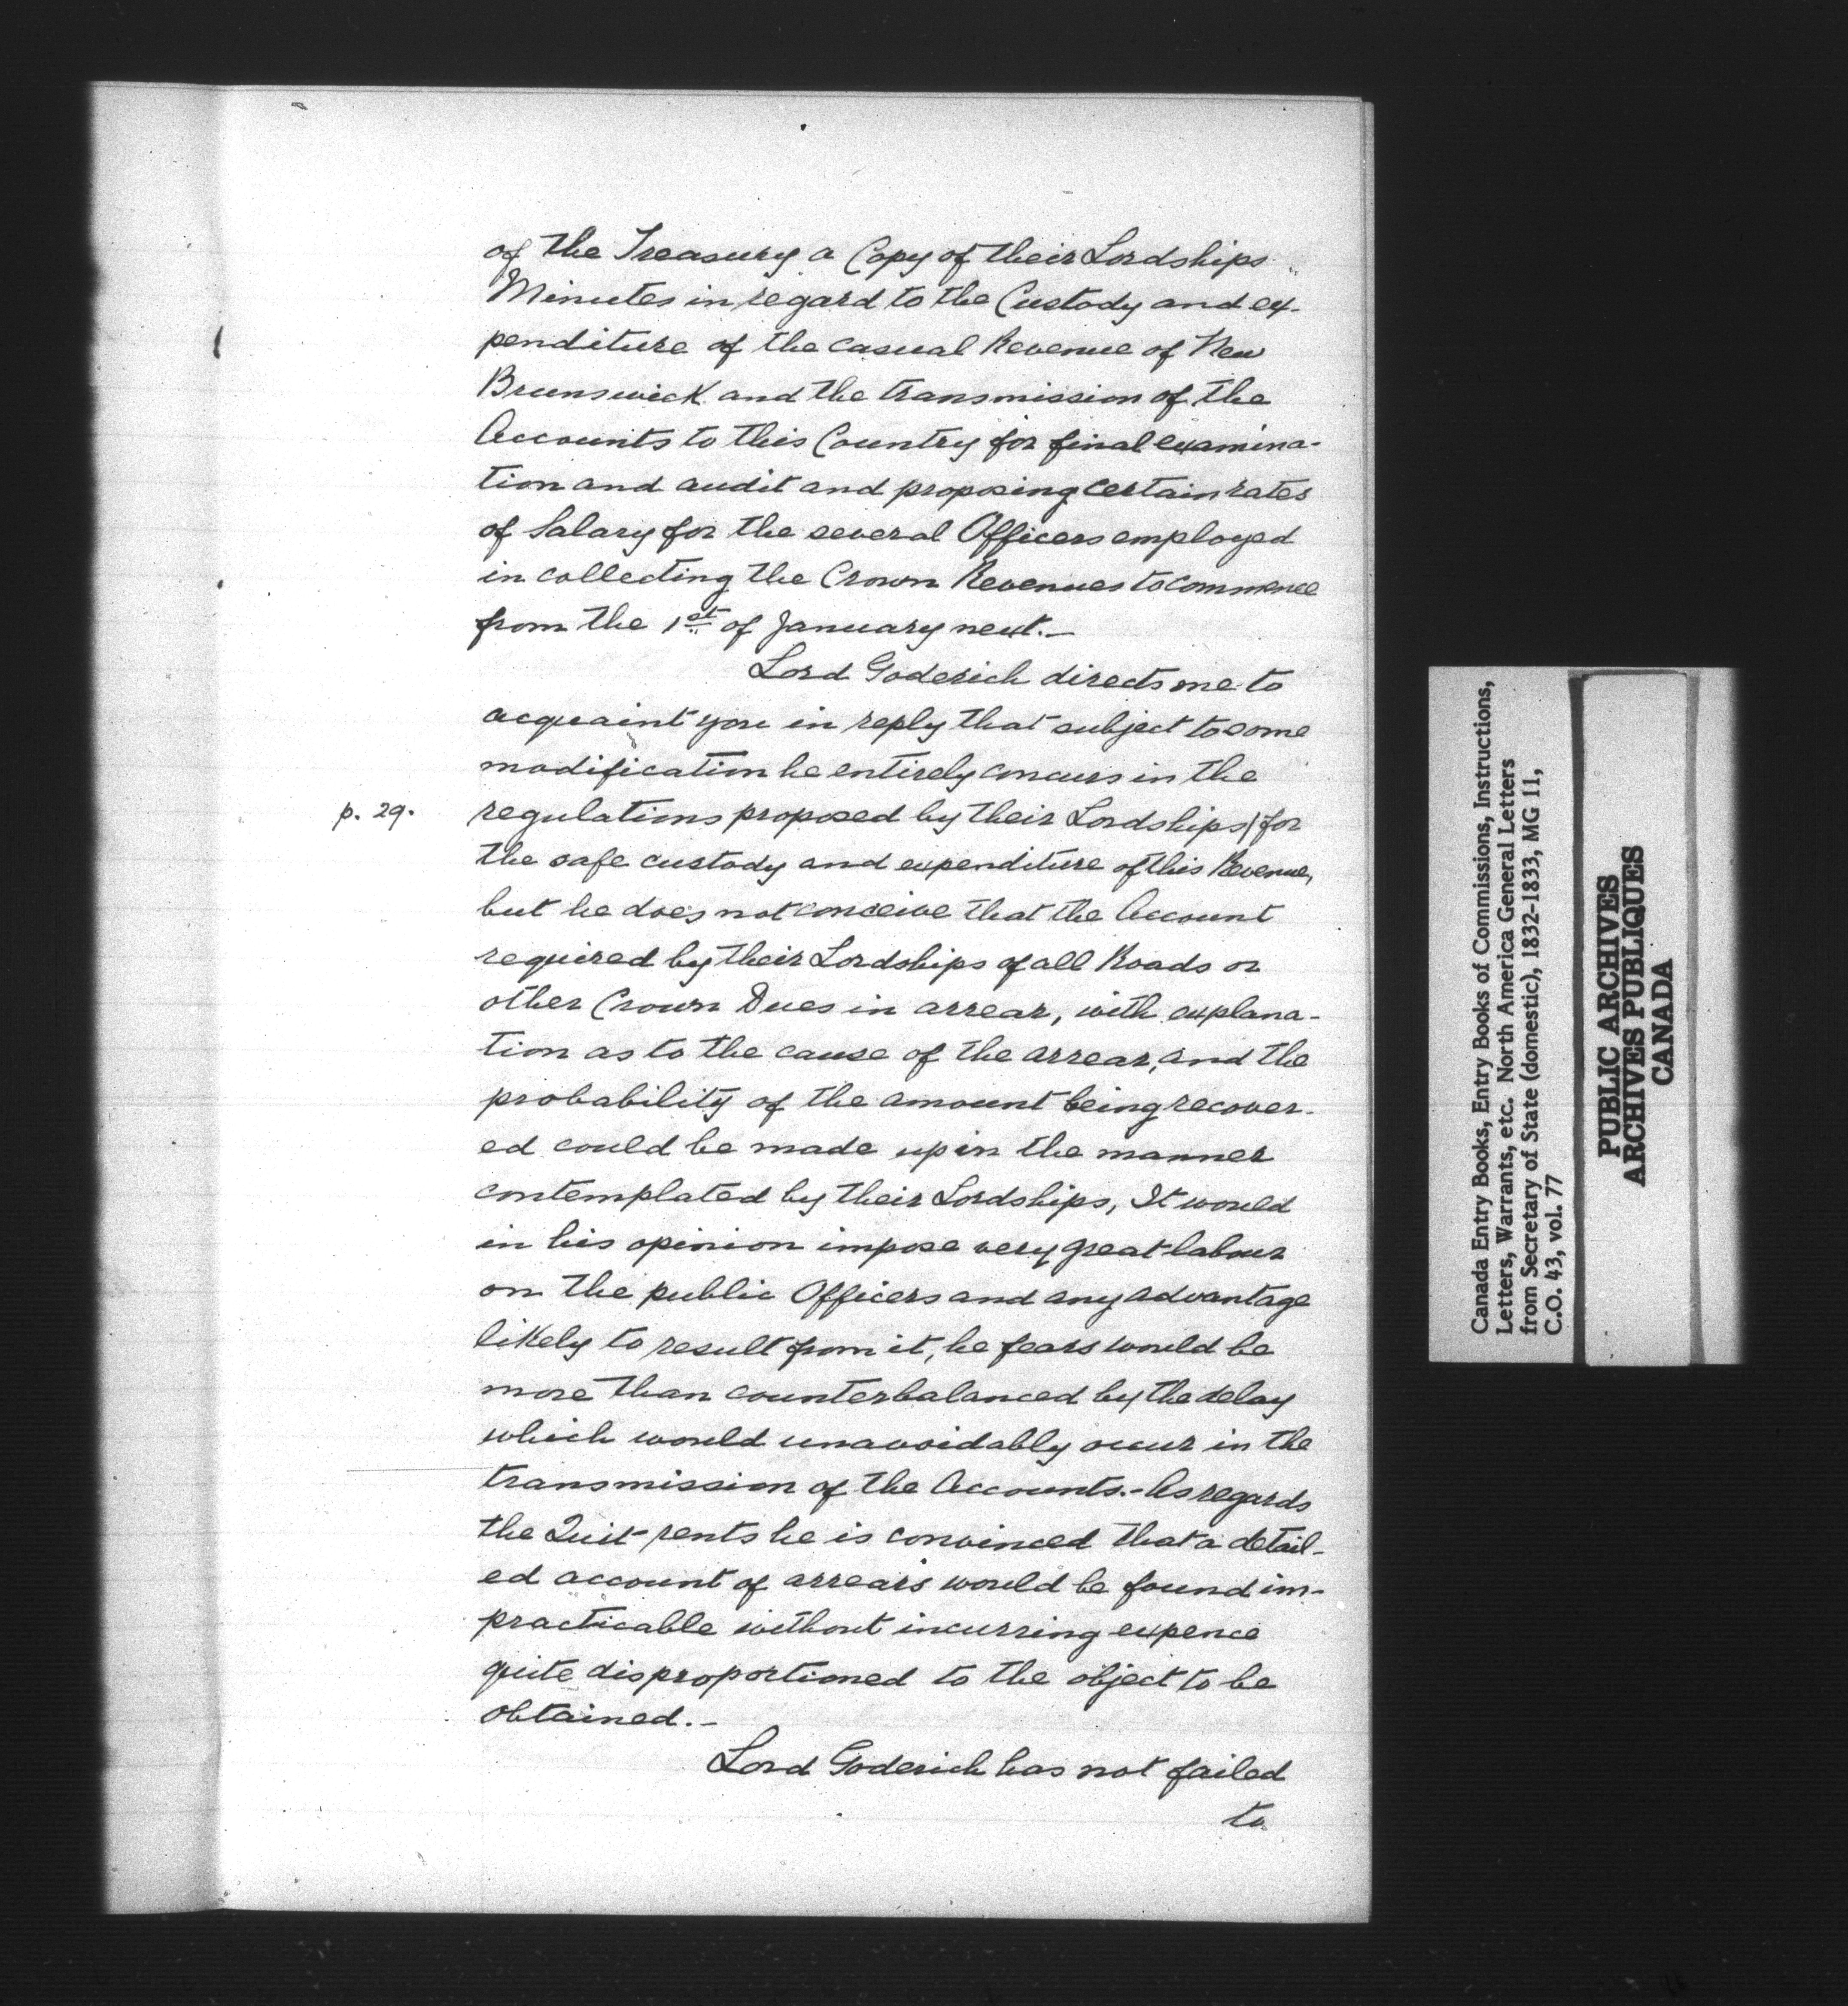 of the Treasury a Copy of their Lordships
Minutes in regard to the Custody and ex-
penditure of the casual Revenue of New
Brunswick and the transmission of the
Accounts to this Country for final examina-
tion and audit and proposing certain rates
of Salary for the several Officers employed
in collecting the Crown Revenues to commence
from the 1st of January next.—
Lord Goderich directs me to
acquaint you in reply that subject to some
modification he entirely concurs in the
p. 29. regulations proposed by their Lordships/for
the safe custody and expenditure of this Revenue,
but he does not conceive that the Account
required by their Lordships of all Roads or
other Crown Dues in arrear, with explana-
tion as to the cause of the arrear, and the
probability of the amount being recover-
ed could be made up in the manner
contemplated by their Lordships, It would
in his opinion impose very great labour
on the public Officers and any advantage
likely to result from it, he fears would be
more than counterbalanced by the delay
which would unavoidably occur in the
transmission of the Accounts.- As regards
the Quit-rents he is convinced that a detail-
ed account of arrears would be found im-
practicable without incurring expence
quite disproportioned to the object to be
obtained.-
Lord Goderich has not failed
to
Canada Entry Books, Entry Books of Commissions, Instructions,
Letters, Warrants, etc. North America General Letters
from Secretary of State (domestic), 1832-1833, MG 11,
C.O. 43, vol. 77
PUBLIC ARCHIVES
ARCHIVES PUBLIQUES
CANADA